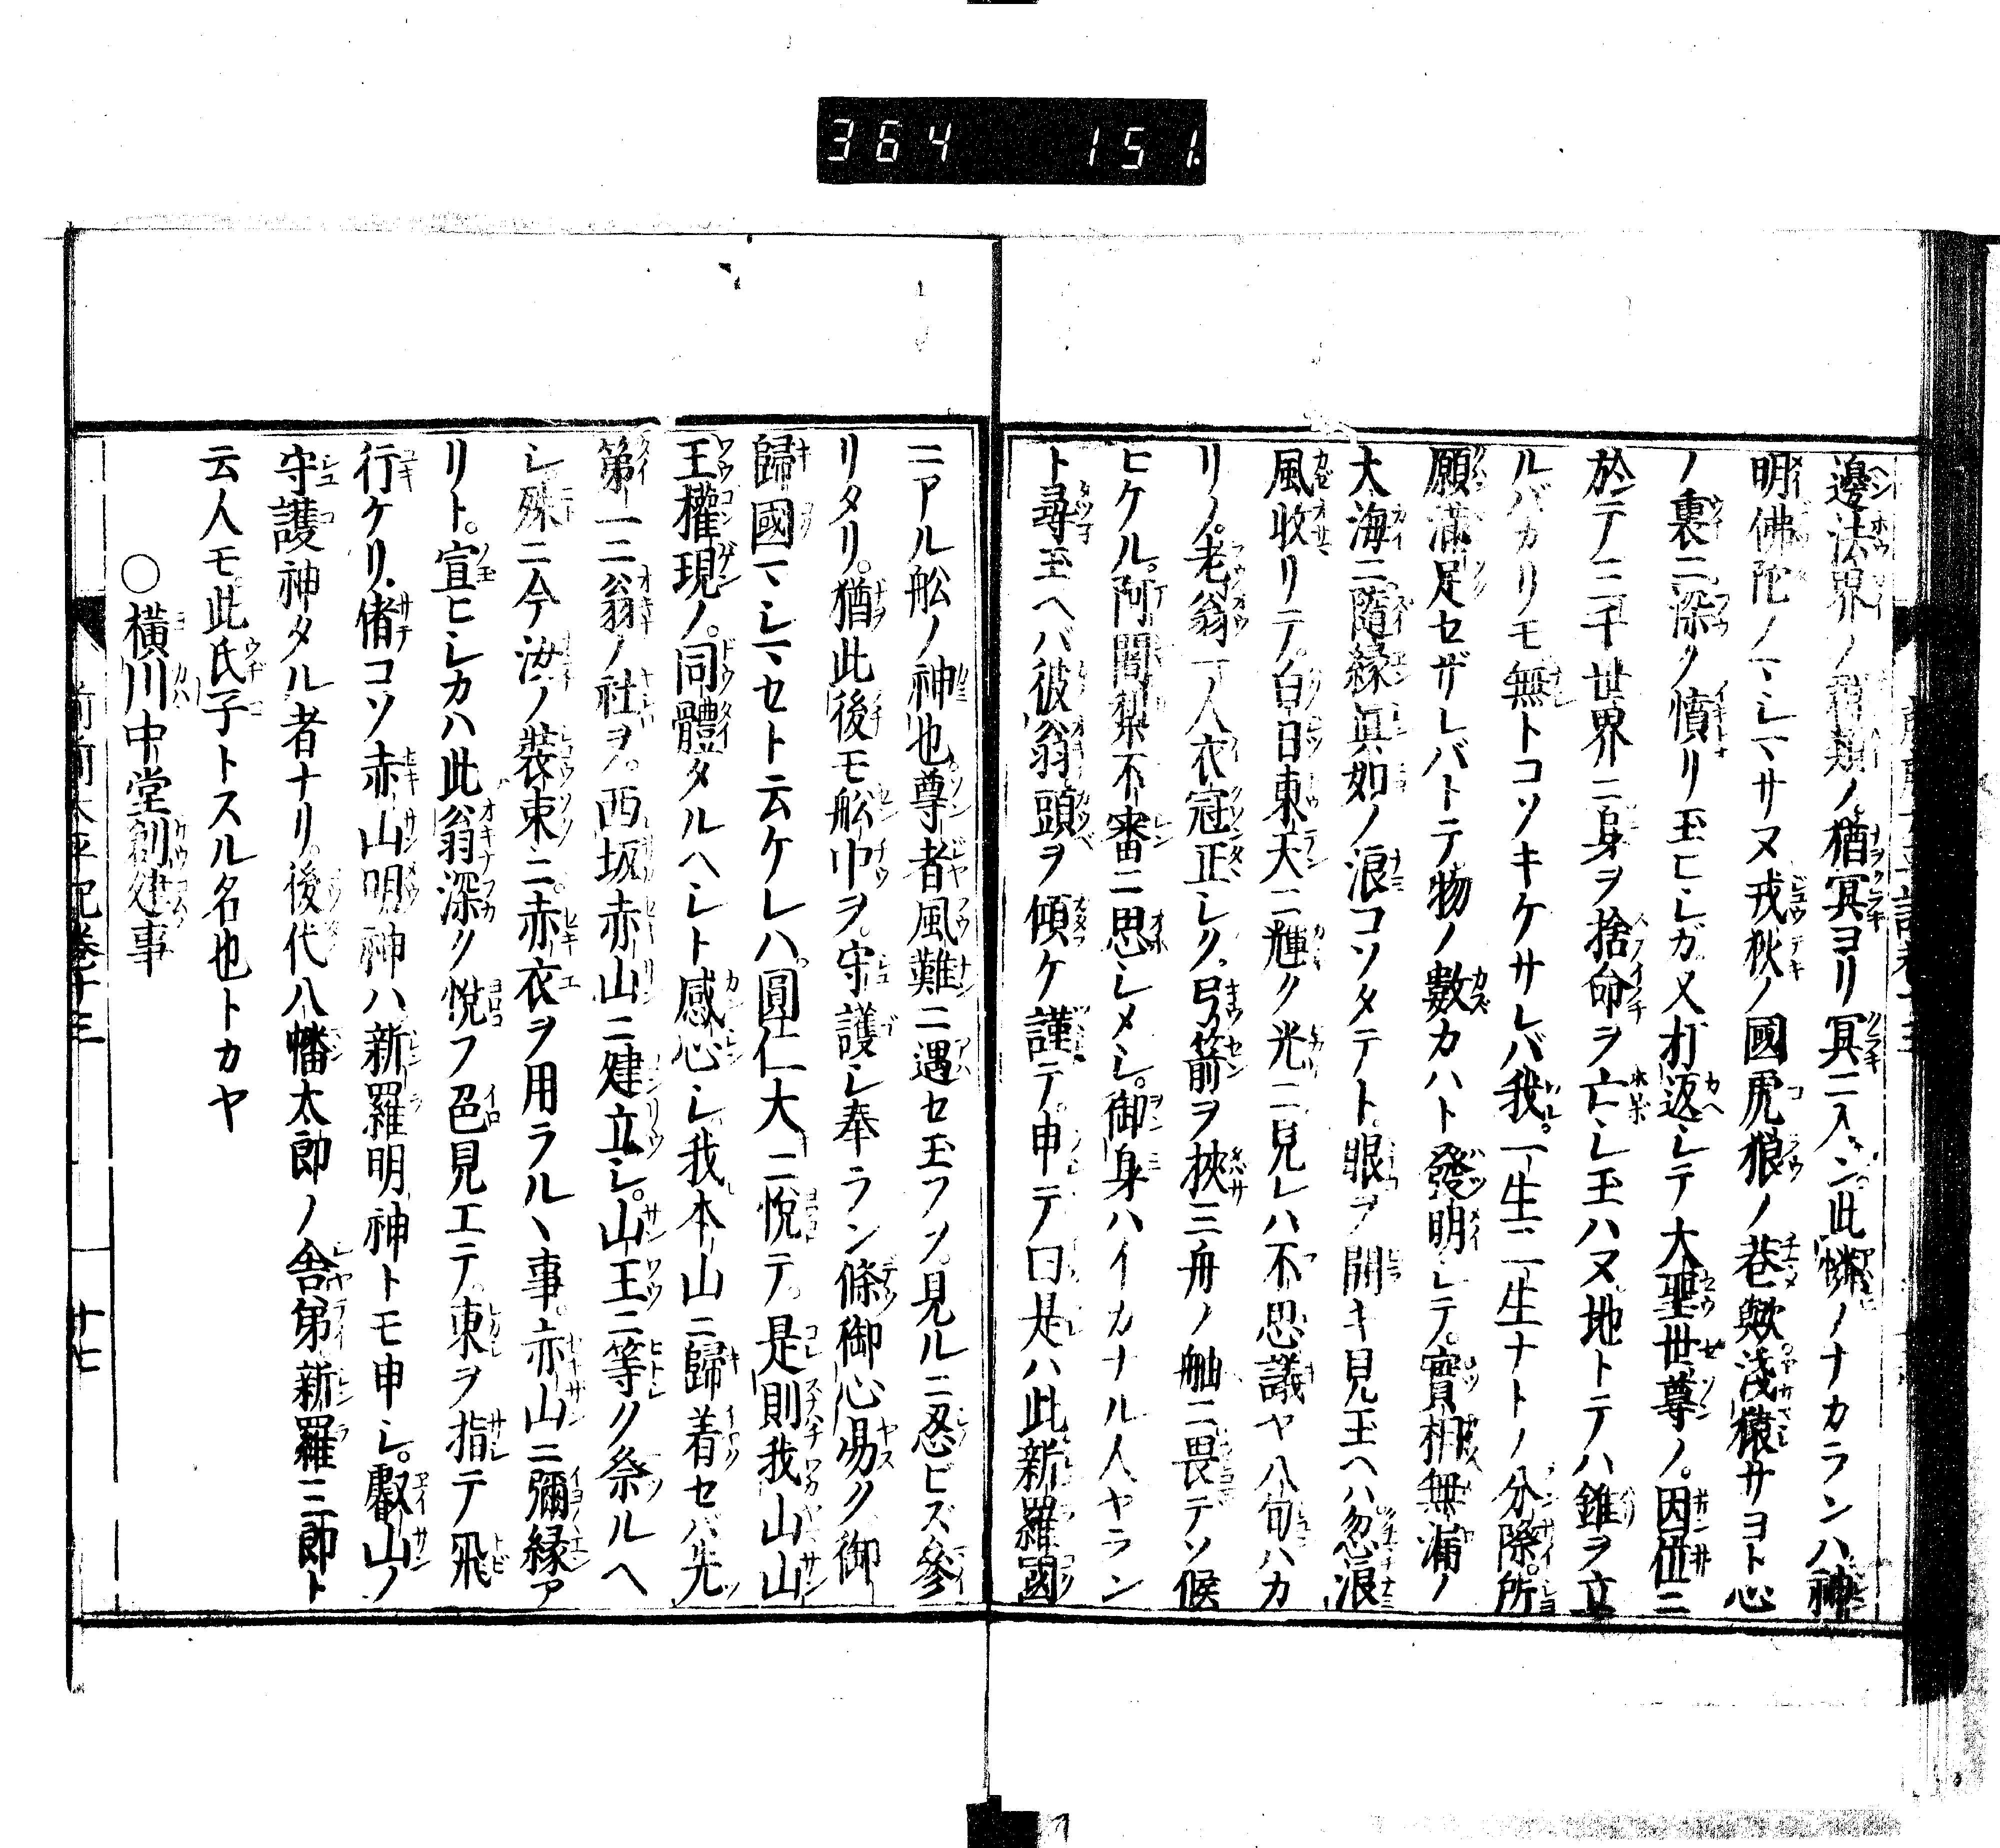 364 151
邊法界ノ群類ノ猶冥ヨリ冥ニ入ン此憐ノナカラン八神
明佛陀ノマシマサヌ戎狄ノ國虎狼ノ巷歟淺猿サヨト心
ノ裏ニ深ク憤リ玉ヒシガ又打返シテ大聖世尊ノ因位ニ
於テ三千世界ニ身ヲ捨命ヲ亡シ玉ハヌ地トテハ錐ヲ立
ルバカリモ無トコソキケサレバ我一生二生ナトノ分際所
願滿足セザレバトテ物ノ數カハト發明シテ實相無漏ノ
大海ニ隨緣眞如ノ浪コソタテト眼ヲ開キ見玉ヘハ忽浪
風收リテ白日東天ニ輝ク光ニ見レハ不思議ヤ八旬ハカ
リノ老翁一人衣冠正シク弓箭ヲ挾三舟ノ舳ニ畏テソ候
ヒケル阿闍梨不審ニ思シメシ御身ハイカナル人ヤラン
ト尋玉ヘバ彼翁頭ヲ傾ケ謹テ申テ曰是ハ此新羅國
ニアル舩ノ神也尊者風難ニ遇セ玉フヲ見ルニ忍ビズ參
リタリ猶此後モ舩中ヲ守護シ奉ラン條御心易ク御
歸國マシマセト云ケレハ圓仁大ニ悅テ是則我山山
王權現ノ同體タルヘシト感心シ我本山ニ歸着セバ先
第一ニ翁ノ社ヲ西坂赤山ニ建立シ山王ニ等ク祭ルヘ
シ殊ニ今汝ノ裝束ニ赤衣ヲ用ラルヽ事赤山ニ彌緣ア
リト宣ヒシカハ此翁深ク悅フ色見エテ東ヲ指テ飛
行ケリ偖コソ赤山明神ハ新羅明神トモ申シ叡山ノ
守護神タル者ナリ後代八幡太郎ノ舎弟新羅三郎ト
云人モ此氏子トスル名也トカヤ
○橫川中堂創建事
前前太平記卷十三 十七